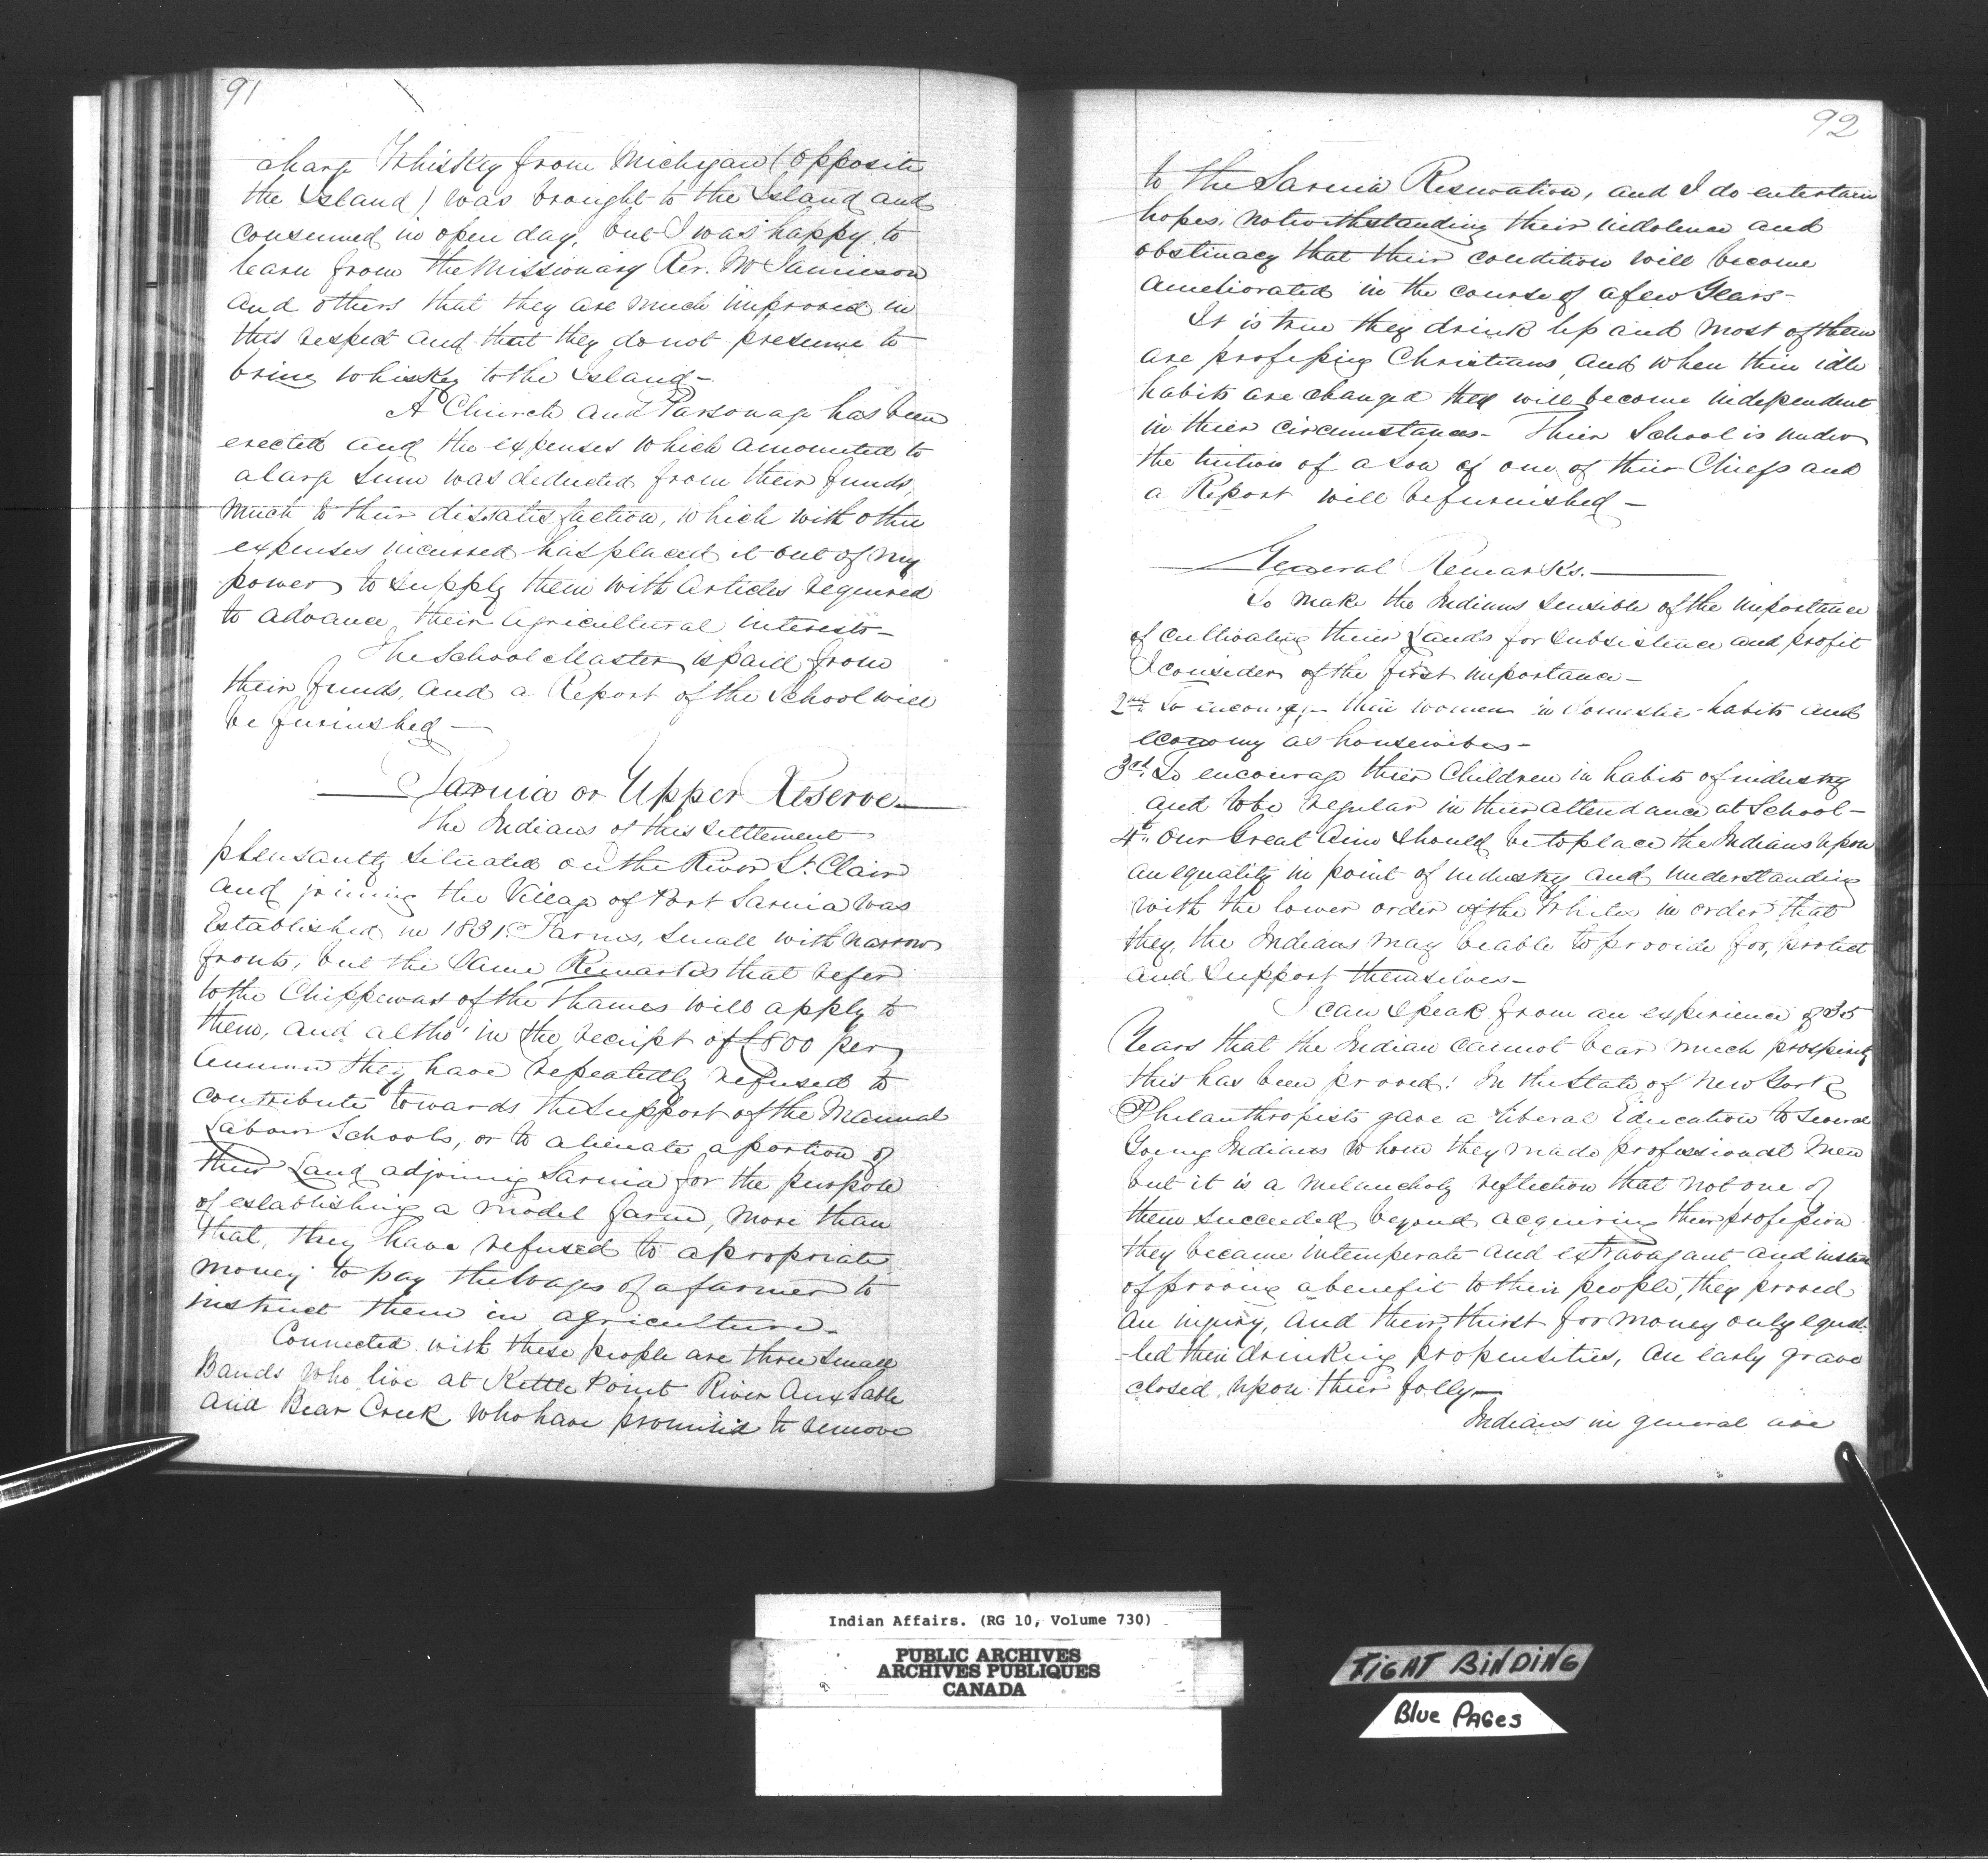 91
charge Whiskey from Michigan (opposite
the Island) was brought to the Island and
consumed in open day, but I was happy to
learn from the Missionary Rev. Mr Jamieson
and others that they are much improved in
this respect and that they do not presume to
bring whiskey to the Island –
A Church and Parsonage has been
erected and the expenses which amounted to
a large sum was deducted from their funds,
much to their dissatisfaction, which with other
expenses incurred has placed it out of my
power to supply them with articles required
to advance their agricultural interests –
The School Master is paid from
their funds, and a Report of the School will
be furnished –
Sarnia or Upper Reserve
The Indians of this settlement
pleasantly situated on the River St. Clair
and joining the Village of Port Sarnia was
Established in 1831. Farms, small with narrow
fronts, but the same Remarks that refer
to the Chippewas of the Thames will apply to
them, and altho' in the receipt of £800 per
annum they have repeatedly refused to
contribute towards the support of the Manual
Labour Schools, or to alienate a portion of
their Land adjoining Sarnia for the purpose
of establishing a model farm, more than
that, they have refused to apropriate
money to pay the wages of a farmer to
instruct them in agriculture –
Connected with these people are three small
Bands who live at Kettle Point River Aux Sable
and Bear Creek who have promised to remove
92
to the Sarnia Reservation, and I do entertain
hopes, notwithstanding their indolence and
obstinacy that their condition will become
ameliorated in the course of a few Years –
It is true they drink less and most of them
are professing Christians, and when their idle
habits are changed they will become independent
in their circumstances – Their School is under
the tuition of a Son of one of their Chiefs and
a Report will be furnished –
General Remarks.
To make the Indians sensible of the importance
of cultivating their Lands for subsistence and profit
I consider of the first importance –
2nd To encourage their women in domestic habits and
economy as housewives –
3rd. To encourage their Children in habits of industry
and to be regular in their attendance at School –
4th. Our Great Aim should be to place the Indians upon
an equality in point of industry and understanding
with the lower order of the Whites in order that
they, the Indians may be able to provide for, protect
and support themselves –
I can speak from an experience of 35
Years that the Indian cannot bear much prosperity
this has been proved! In the State of New York
Philanthropists gave a liberal Education to several
Young Indians whom they made professional Men
but it is a melancholy reflection that not one of
them succeeded beyond acquiring their profession
they became intemperate and extravagant and instead
of proving a benefit to their people, they proved
an injury, and their thirst for money only equal-
-led their drinking propensities, an early grave
closed upon their folly –
Indians in general are
Indian Affairs. (RG 10, Volume 730)
PUBLIC ARCHIVES
ARCHIVES PUBLIQUES
CANADA
TIGHT BINDING
Blue PAGes